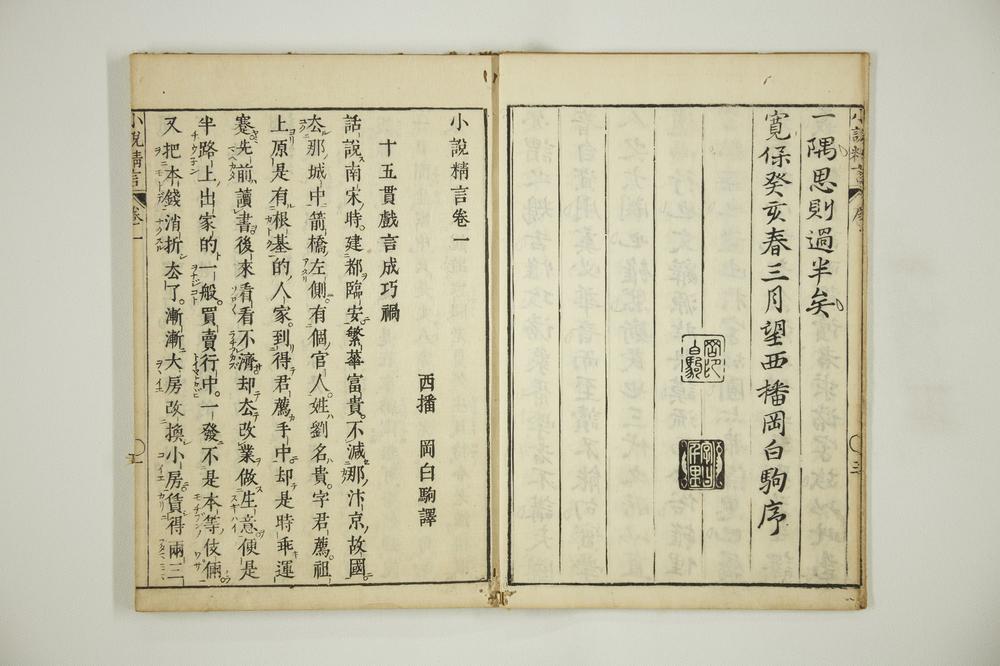 一隅思則過半矣
寛保癸亥春三月望西播岡白駒序
小說精言卷一
十五貫戲言成巧禍
西播 岡白駒譯
話說南宋時。建都臨安。繁華富貴。不減那汴京故國。
去那城中箭橋左側。有個官人。姓劉名貴。字君薦。祖
上原是有根基的人家。到得君薦手中。却是時乖運
蹇。先前讀書。後來看看不濟。却去改業做生意。便是
半路上出家的一般。買賣行中。一發不是本等伎倆。
又把本錢消折去了。漸漸大房改換小房。賃得兩三
小說精言 卷一